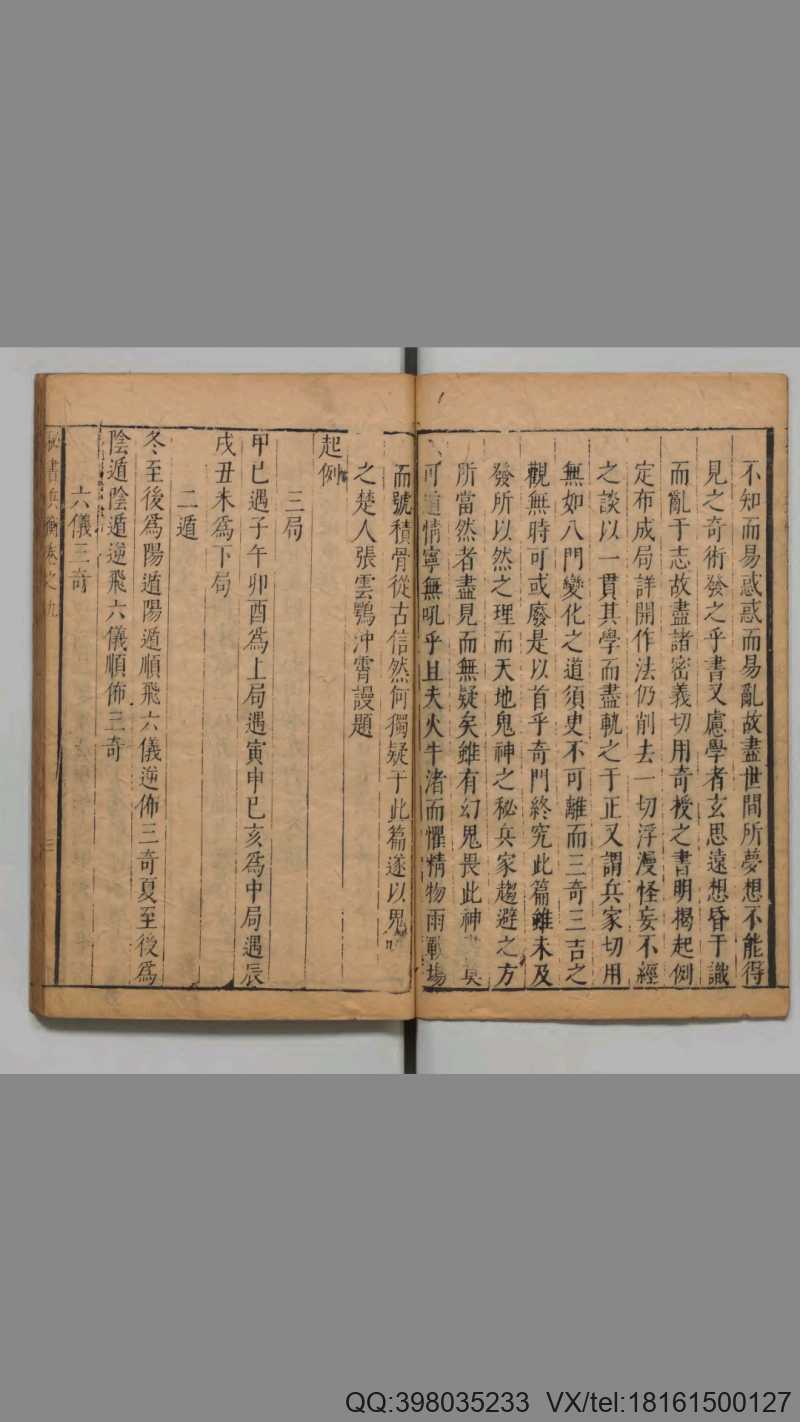 不知而易惑惑而易亂故盡世間所夢想不能得
見之奇術發之乎書又慮學者玄思遠想昏于識
而亂于志故盡諸密義切用奇授之書明揭起例
定布成局詳開作法仍削去一切浮漫怪妄不經
之談以一貫其學而盡軌之于正又謂兵家切用
無如八門變化之道須史不可離而三奇三吉之
觀無時可或廢是以首乎奇門終究此篇雖未及
發所以然之理而天地鬼神之秘兵家趨避之方
所當然者盡見而無疑矣雖有幻鬼畏此神
可道情寧無吼乎且夫火牛渚而懼情物雨戰場
而號積骨從古信然何獨疑于此篇遂以鬼
之楚人張雲鶚沖霄謾題
起例
三局
甲巳遇子午卯酉為上局遇寅申巳亥為中局遇辰
戌丑未為下局
二遁
冬至後為陽遁陽遁順飛六儀逆佈三奇夏至後為
陰遁陰遁逆飛六儀順佈三奇
六儀三奇
書兵衡卷之九
三
QQ:398035233 VX/tel:18161500127